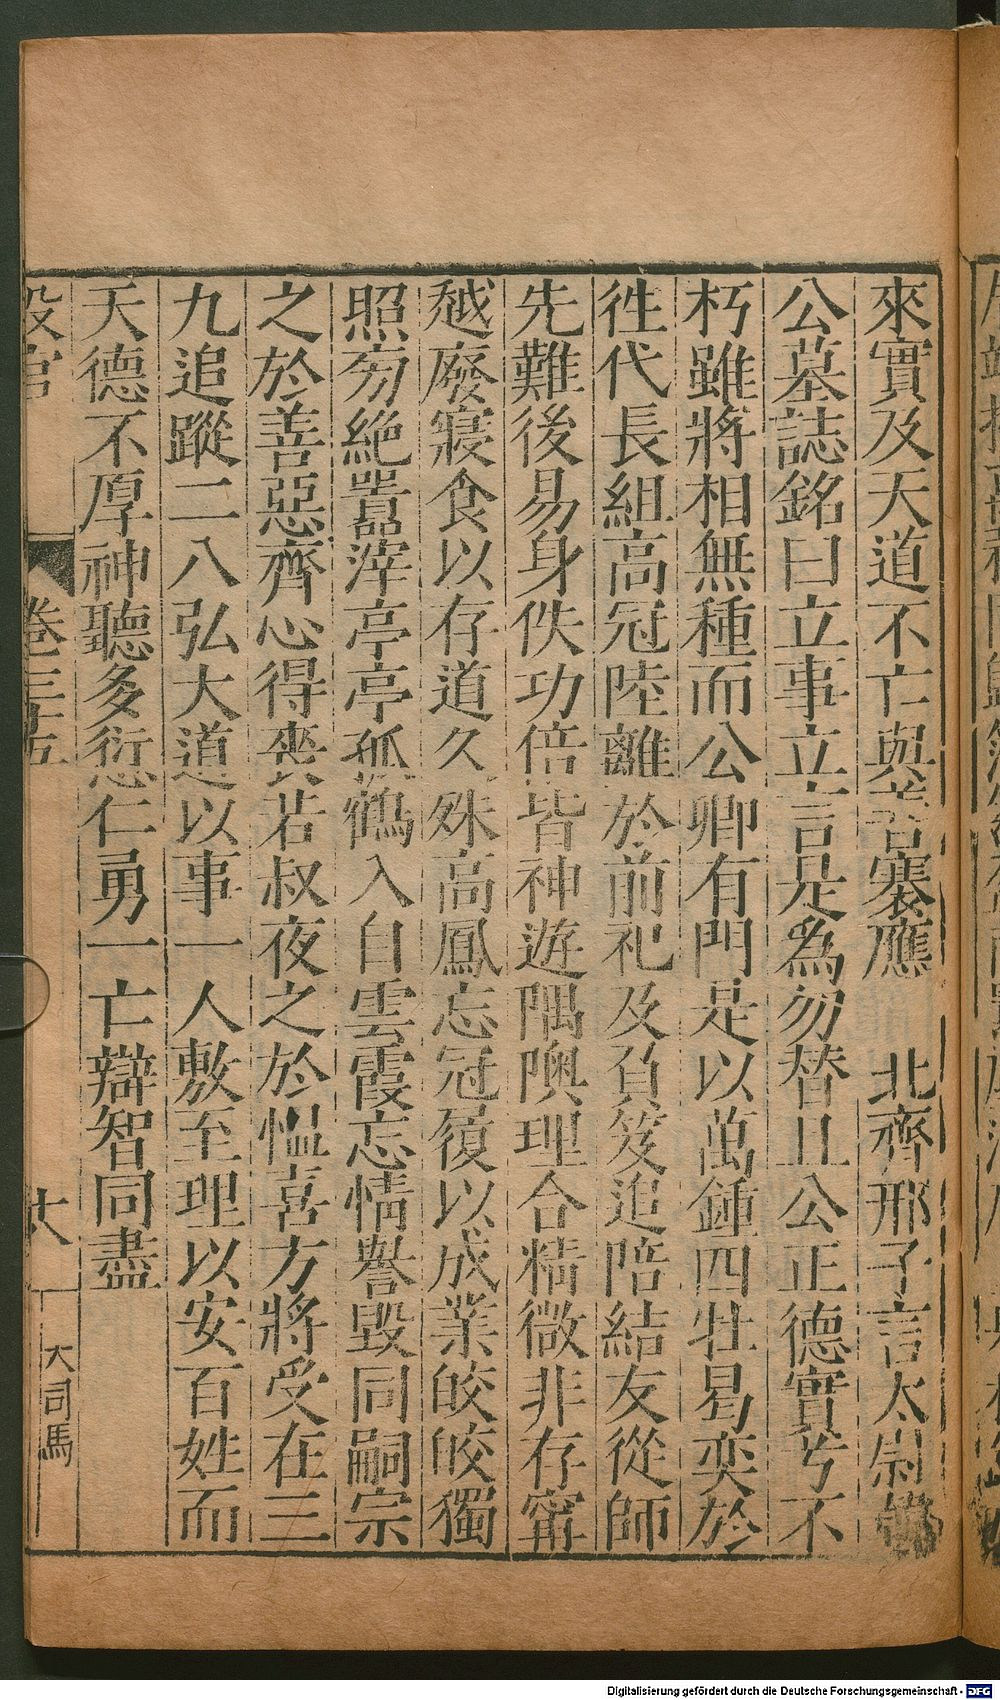 來實及天道不亡與善寔應　北齊邢子言太尉韓
公墓誌銘曰立事立言是為勿替且公正德實兮不
朽雖將相無種而公卿有門是以萬鍾四牡曷奕於
徃代長組高冠陸離於前祀及負笈追陪結友從師
先難後易身佚功倍皆神遊隅隩理合精微非存甯
越廢寢食以存道久殊高鳳忘冠履以成業皎皎獨
照匆絶囂滓亭亭孤鶴入自雲霞忘情譽毀同嗣宗
之於善惡齊心得喪若叔夜之於愠喜方將受在三
九追蹤二八弘大道以事一人敷至理以安百姓而
天德不厚神聽多愆仁勇一亡辯智同盡
設官
卷三五
十八
大司馬
Digitalisierung gefördert durch die Deutsche Forschungsgemeinschaft - DFG